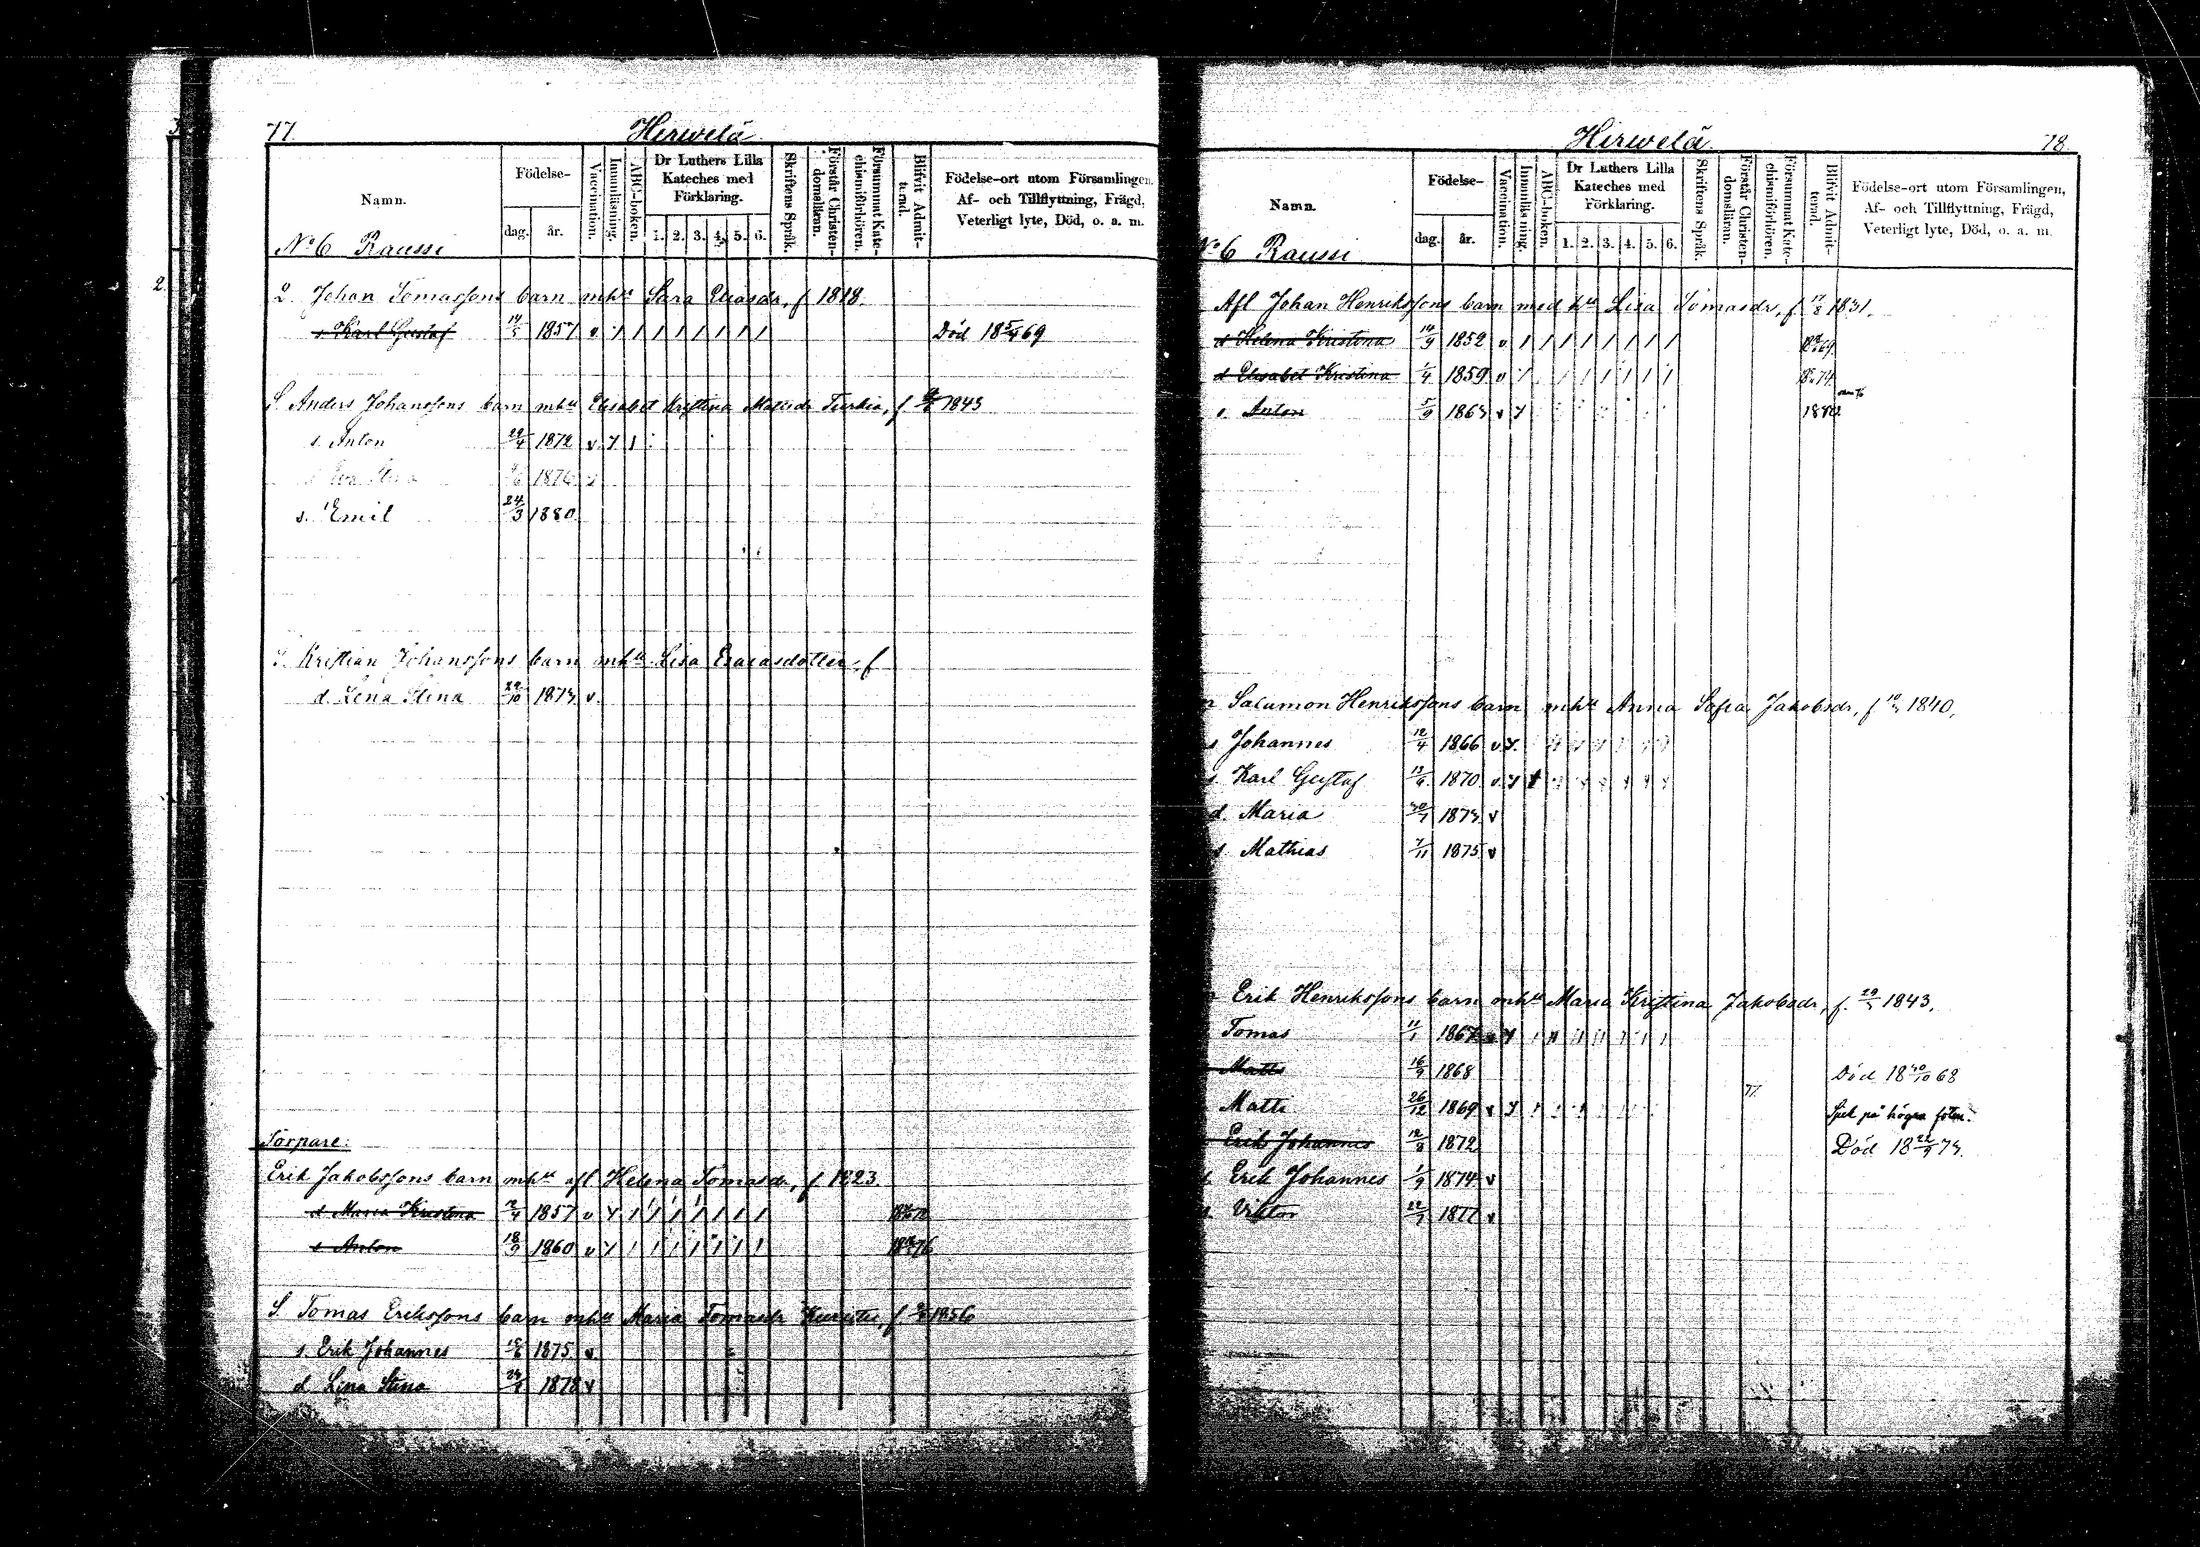 77.
Hirwelä
Namn.
Födelse-
dag.
år.
Vaccination.
Innanläsning.
ABC-boken.
Dr Luthers Lilla
Kateches med
Förklaring.
1. 2. 3. 4. 5. 6.
Skriftens Språk.
Förstår Christen-
domsläran.
Försummat Kate-
chismiförhören.
Blifvit Admit-
terad.
Födelse-ort utom Församlingen,
Af- och Tillflyttning, Frägd,
Veterligt lyte, Död, o. a. m.
No 6 Raussi
2. Johan Tomassons barn mhu Sara Eliasdr, f 1818
s Karl Gustaf 14/5 1857 v Död 18 69
S. Anders Johanssons barn mhu Elisabet Kristina Matsdr Turkia, f 1843
s. Anton 29/4 1872 v
1876 v
s. Emil 24/3 1880
S. Kristian Johanssons barn mhu Lisa Esaiasdotter, f
d. Lena Stina 29/10 1873 v.
Torpare:
Erik Jakobssons barn mhu afl Helena Tomasdr, f 1823
d Maria Kristina 12/4 1857 v
s Anton 18/9 1860 v
S. Tomas Erikssons barn mhu Maria Tomasdr f 1856
s. Erik Johannes 1875 v
d Lina Stina 1878 v
Hirwelä
78
Namn.
Födelse-
dag.
år.
Vaccination.
Innanläsning.
ABC-boken.
Dr Luthers Lilla
Kateches med
Förklaring.
1. 2. 3. 4. 5. 6.
Skriftens Språk.
Förstår Christen-
domsläran.
Försummat Kate-
chismiförhören.
Blifvit Admit-
terad.
Födelse-ort utom Församlingen,
Af- och Tillflyttning, Frägd,
Veterligt lyte, Död, o. a. m.
No 6 Raussi
Afl Johan Henrikssons barn med hu Lisa Tomasdr, f 17/8 1831.
d Helena Kristina 14/9 1852 v
d Elisabet Kristina 1/4 1859 v
s. Anton 5/9 1863 v 1882
Salumon Henrikssons barn mhu Anna Sofia Jakobsdr, f 1840.
s Johannes 12/4 1866 v
s. Karl Gustaf 13/6 1870 v
d. Maria 30/7 1873 v
s. Mathias 7/11 1875 v
Erik Henrikssons barn mhu Maria Kristina Jakobsdr, f. 1843.
Tomas 11/1 1867
Matts 16/9 1868 Död 18 30/10 68
Matts 26/12 1869 v på högra foten.
Erik Johannes 12/8 1872 Död 18 22/9 73.
s. Erik Johannes 1/9 1874 v
s. Viktor 22/7 1877 v